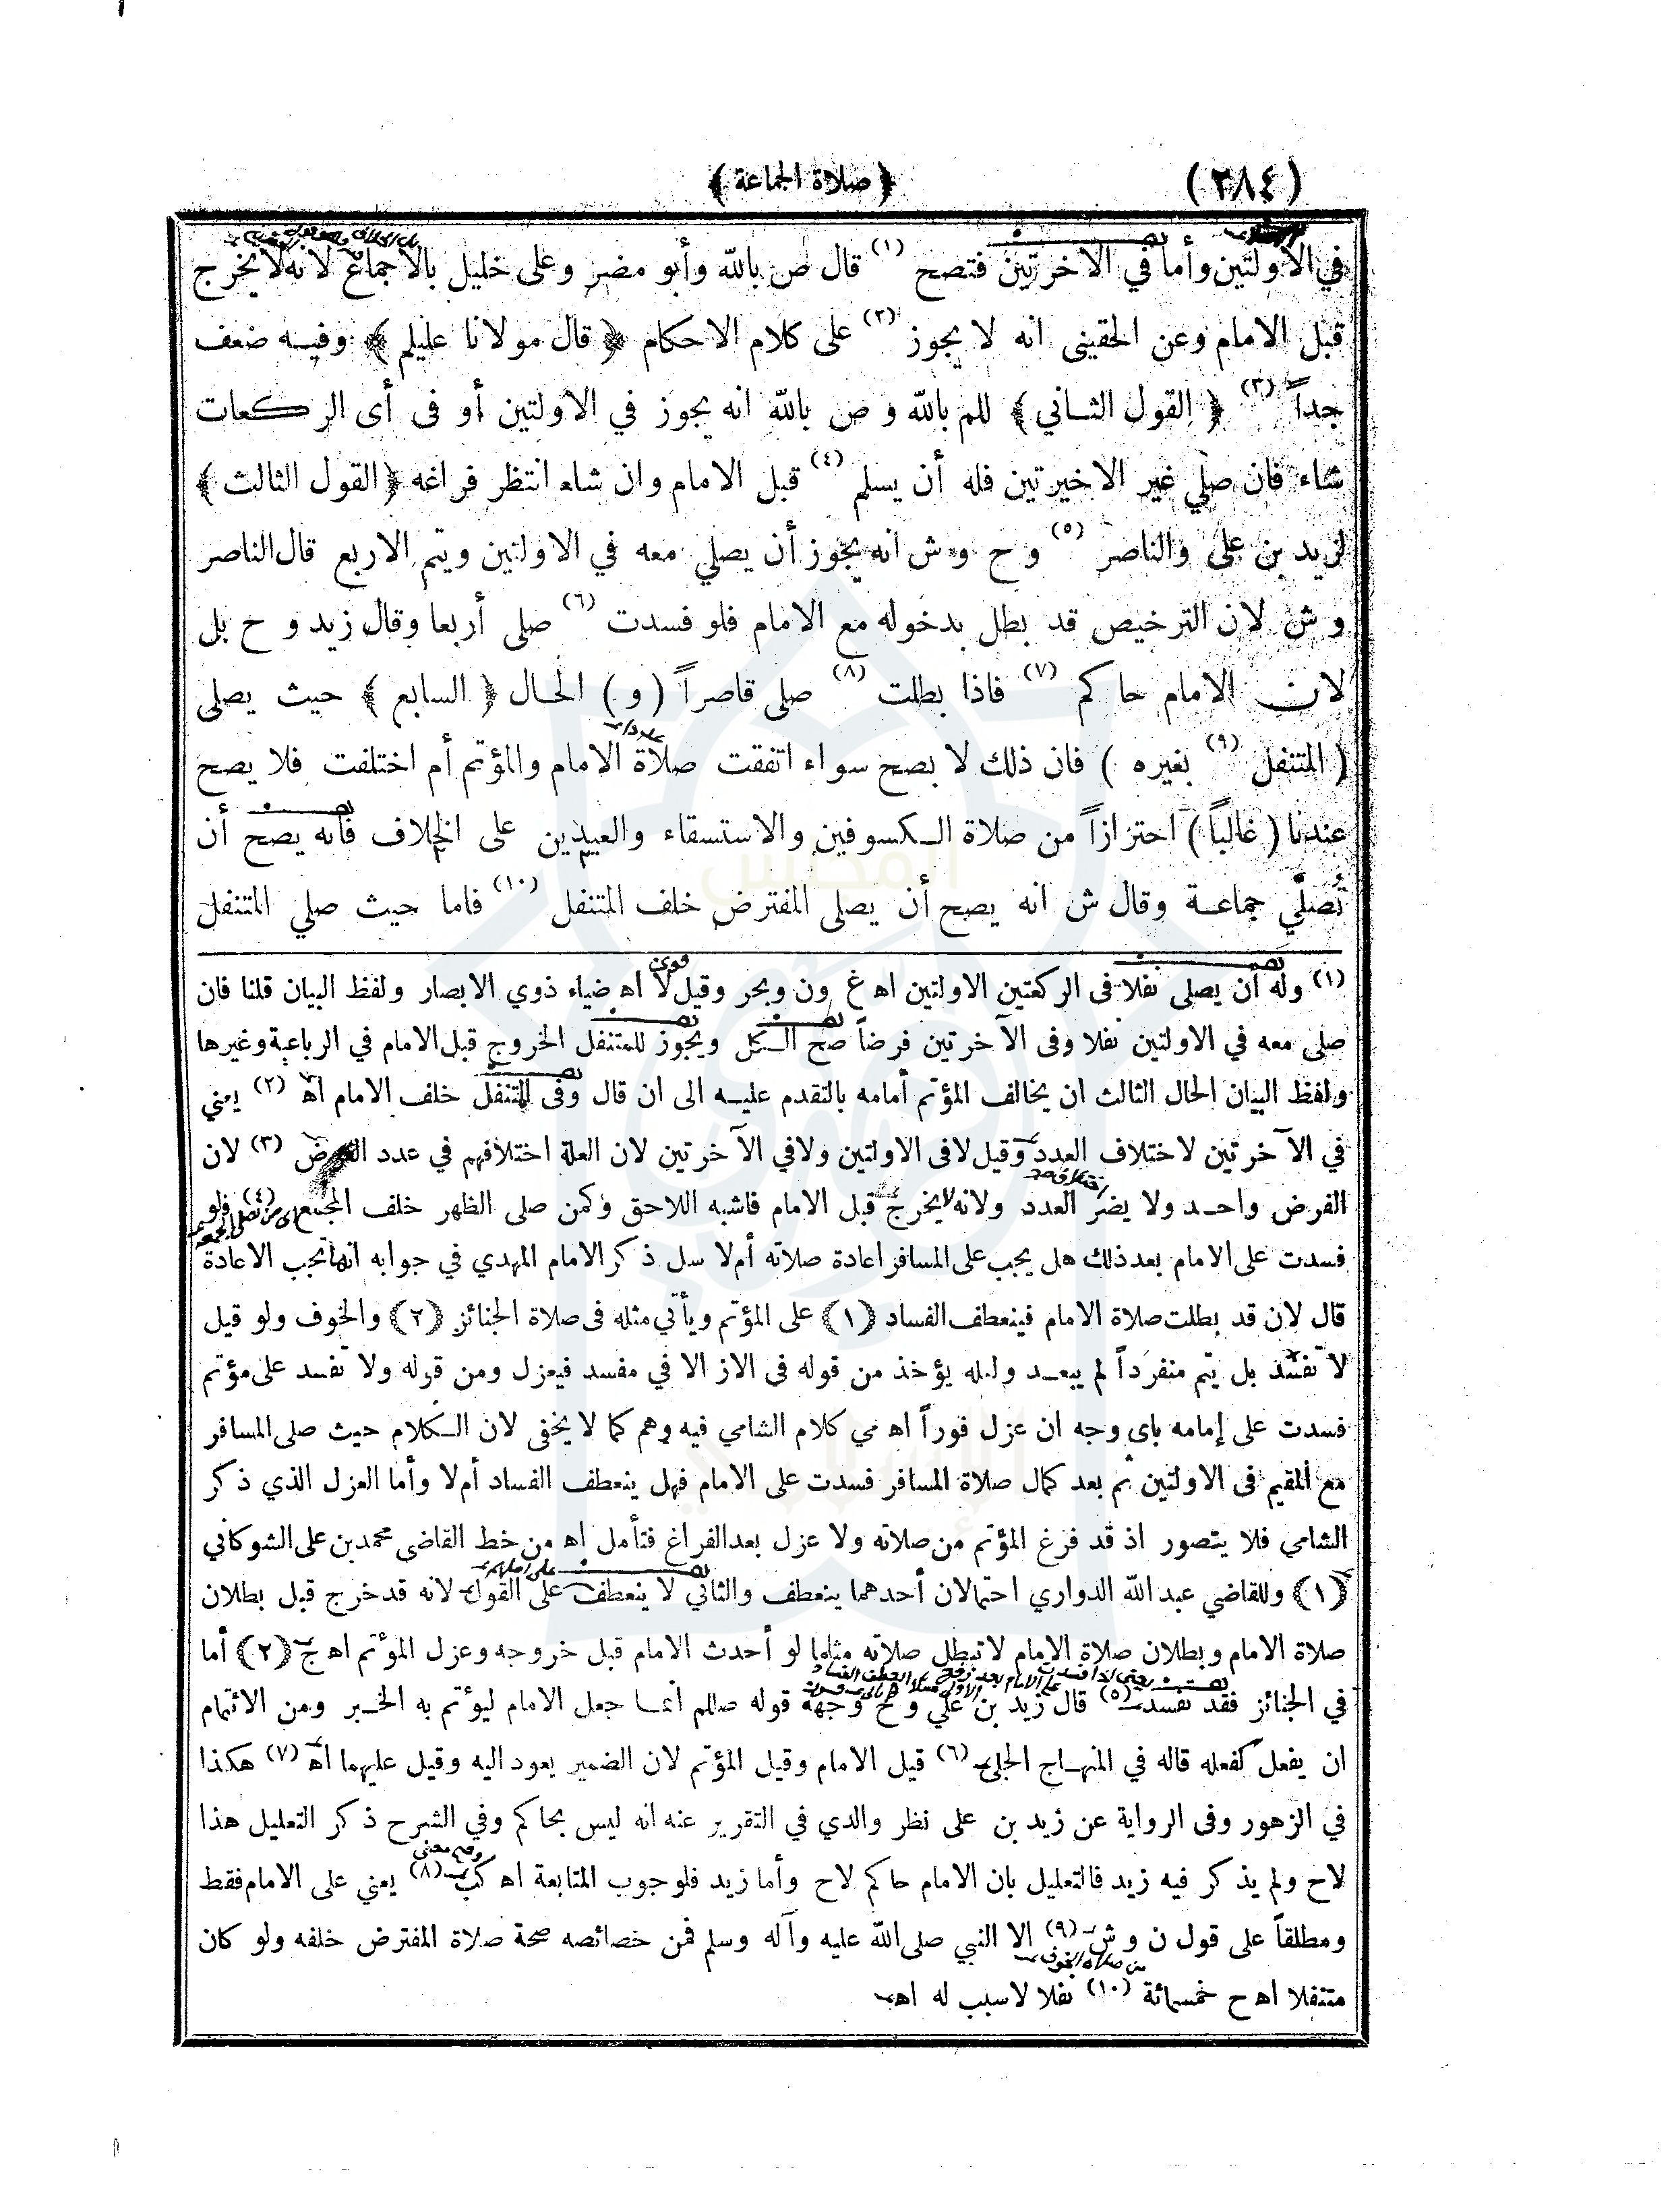 (٣٨٤)
﴿ صلاة الجماعة ﴾
في الاولتين وأما في الاخرتين فتصح (١) قال ص بالله وأبو مضر وعلى خليل بالاجماع لانه لا يخرج
قبل الامام وعن الحقيني انه لا يجوز (٢) على كلام الاحكام ﴿ قال مولانا عليلم ﴾ وفيه ضعف
جداً (٣) ﴿ القول الثاني ﴾ للم بالله و ص بالله انه يجوز في الاولتين أو فى أى الركعات
شاء فان صلي غير الاخيرتين فله أن يسلم (٤) قبل الامام وان شاء انتظر فراغه ﴿ القول الثالث ﴾
لزيد بن على والناصر (٥) و ح و ش انه يجوز أن يصلي معه في الاولتين ويتم الاربع قال الناصر
و ش لان الترخيص قد بطل بدخوله مع الامام فلو فسدت (٦) صلى أربعا وقال زيد و ح بل
لان الامام حاكم (٧) فاذا بطلت (٨) صلى قاصراً (و) الحال ﴿ السابع ﴾ حيث يصلى
( المتنفل (٩) بغيره ) فان ذلك لا يصح سواء اتفقت صلاة الامام والمؤتم أم اختلفت فلا يصح
عندنا ( غالباً ) احترازاً من صلاة الكسوفين والاستسقاء والعيدين على الخلاف فانه يصح أن
تُصلّي جماعة وقال ش انه يصح أن يصلى المفترض خلف المتنفل (١٠) فاما حيث صلي المتنفل
(١) وله أن يصلى نفلا فى الركعتين الاولتين اه غ ون وبحر وقيل لا اه ضياء ذوي الابصار ولفظ البيان قلنا فان
صلى معه في الاولتين نفلا وفى الآخرتين فرضاً صح الكل ويجوز للمتنفل الخروج قبل الامام في الرباعية وغيرها
ولفظ البيان الحال الثالث ان يخالف المؤتم أمامه بالتقدم عليه الى ان قال وفى المتنفل خلف الامام اه (٢) يعني
في الآخرتين لاختلاف العدد وقيل لافى الاولتين ولافي الآخرتين لان العلة اختلافهم في عدد الفرض (٣) لان
الفرض واحد ولا يضر العدد ولانه لا يخرج قبل الامام فاشبه اللاحق وكمن صلى الظهر خلف المجمع (٤) فلو
فسدت على الامام بعد ذلك هل يجب على المسافر اعادة صلاته أم لا سل ذكر الامام المهدي في جوابه انها تجب الاعادة
قال لان قد بطلت صلاة الامام فينعطف الفساد ﴿١﴾ على المؤتم ويأتي مثله فى صلاة الجنائز ﴿٢﴾ والخوف ولو قيل
لا تفسد بل يتم منفرداً لم يبعد ولعله يؤخذ من قوله فى الاز الا في مفسد فيعزل ومن قوله ولا تفسد على مؤتم
فسدت على إمامه باى وجه ان عزل فوراً اه مي كلام الشامي فيه وهم كما لا يخفى لان الكلام حيث صلى المسافر
مع المقيم فى الاولتين ثم بعد كمال صلاة المسافر فسدت على الامام فهل ينعطف الفساد أم لا وأما العزل الذي ذكر
الشامي فلا يتصور اذ قد فرغ المؤتم من صلاته ولا عزل بعد الفراغ فتأمل اه من خط القاضى محمد بن على الشوكاني
﴿١﴾ وللقاضي عبد الله الدواري احتمالان أحدهما ينعطف والثاني لا ينعطف على القول لانه قد خرج قبل بطلان
صلاة الامام وبطلان صلاة الامام لا تبطل صلاته مثلما لو أحدث الامام قبل خروجه وعزل المؤتم اه ج ﴿٢﴾ أما
في الجنائز فقد تفسد (٥) قال زيد بن علي و ح وجهة قوله صللم أنما جعل الامام ليؤتم به الخبر ومن الائتمام
ان يفعل كفعله قاله في المنهاج الجلي (٦) قيل الامام وقيل المؤتم لان الضمير يعود اليه وقيل عليهما اه (٧) هكذا
في الزهور وفى الرواية عن زيد بن على نظر والدي في التقرير عنه انه ليس بحاكم وفي الشرح ذكر التعليل هذا
لاح ولم يذكر فيه زيد فالتعليل بان الامام حاكم لاح وأما زيد فلوجوب المتابعة اه كب (٨) يعني على الامام فقط
ومطلقاً على قول ن و ش (٩) الا النبي صلى الله عليه وآله وسلم فمن خصائصه صحة صلاة المفترض خلفه ولو كان
متنفلا اه ح خمسمائة (١٠) نفلا لا سبب له اه